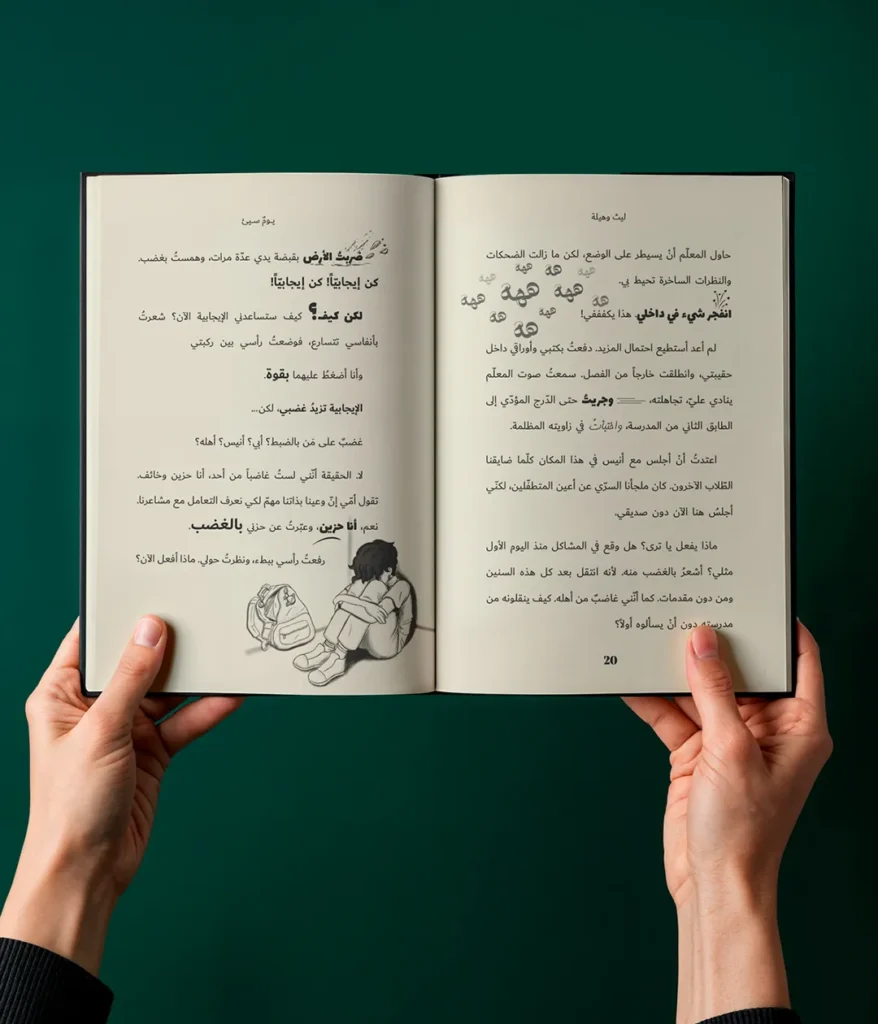 ليث وهيلة
حاول المعلّم أنْ يسيطر على الوضع، لكن ما زالت الضحكات
والنظرات الساخرة تحيط بي.
ههه هه ههه
ههه ههه ههه ههه
هه ههه
هه
انفجر شيء في داخلي. هذا يكفففي!
لم أعد أستطيع احتمال المزيد. دفعتُ بكتبي وأوراقي داخل
حقيبتي، وانطلقت خارجاً من الفصل. سمعتُ صوت المعلّم
ينادي عليّ، تجاهلته، وجريتُ حتى الدّرج المؤدّي إلى
الطابق الثاني من المدرسة، واختبأتُ في زاويته المظلمة.
اعتدتُ أنْ أجلس مع أنيس في هذا المكان كلّما ضايقنا
الطّلاب الآخرون. كان ملجأنا السرّي عن أعين المتطفّلين، لكنّي
أجلسُ هنا الآن دون صديقي.
ماذا يفعل يا ترى؟ هل وقع في المشاكل منذ اليوم الأول
مثلي؟ أشعرُ بالغضب منه. لأنه انتقل بعد كل هذه السنين
ومن دون مقدمات. كما أنّني غاضبٌ من أهله. كيف ينقلونه من
مدرسته دون أنْ يسألوه أولاً؟
20
يومٌ سيئ
ضربتُ الأرض بقبضة يدي عدّة مرات، وهمستُ بغضب.
كن إيجابيّاً! كن إيجابيّاً!
لكن كيف؟ كيف ستساعدني الإيجابية الآن؟ شعرتُ
بأنفاسي تتسارع، فوضعتُ رأسي بين ركبتي
وأنا أضغطُ عليهما بقوة.
الإيجابية تزيدُ غضبي، لكن...
غضبٌ على مَن بالضبط؟ أبي؟ أنيس؟ أهله؟
لا. الحقيقة أنّني لستُ غاضباً من أحد، أنا حزين وخائف.
تقول أمّي إنّ وعينا بذاتنا مهمّ لكي نعرف التعامل مع مشاعرنا.
نعم، أنا حزين، وعبّرتُ عن حزني بالغضب.
رفعتُ رأسي ببطء، ونظرتُ حولي. ماذا أفعل الآن؟